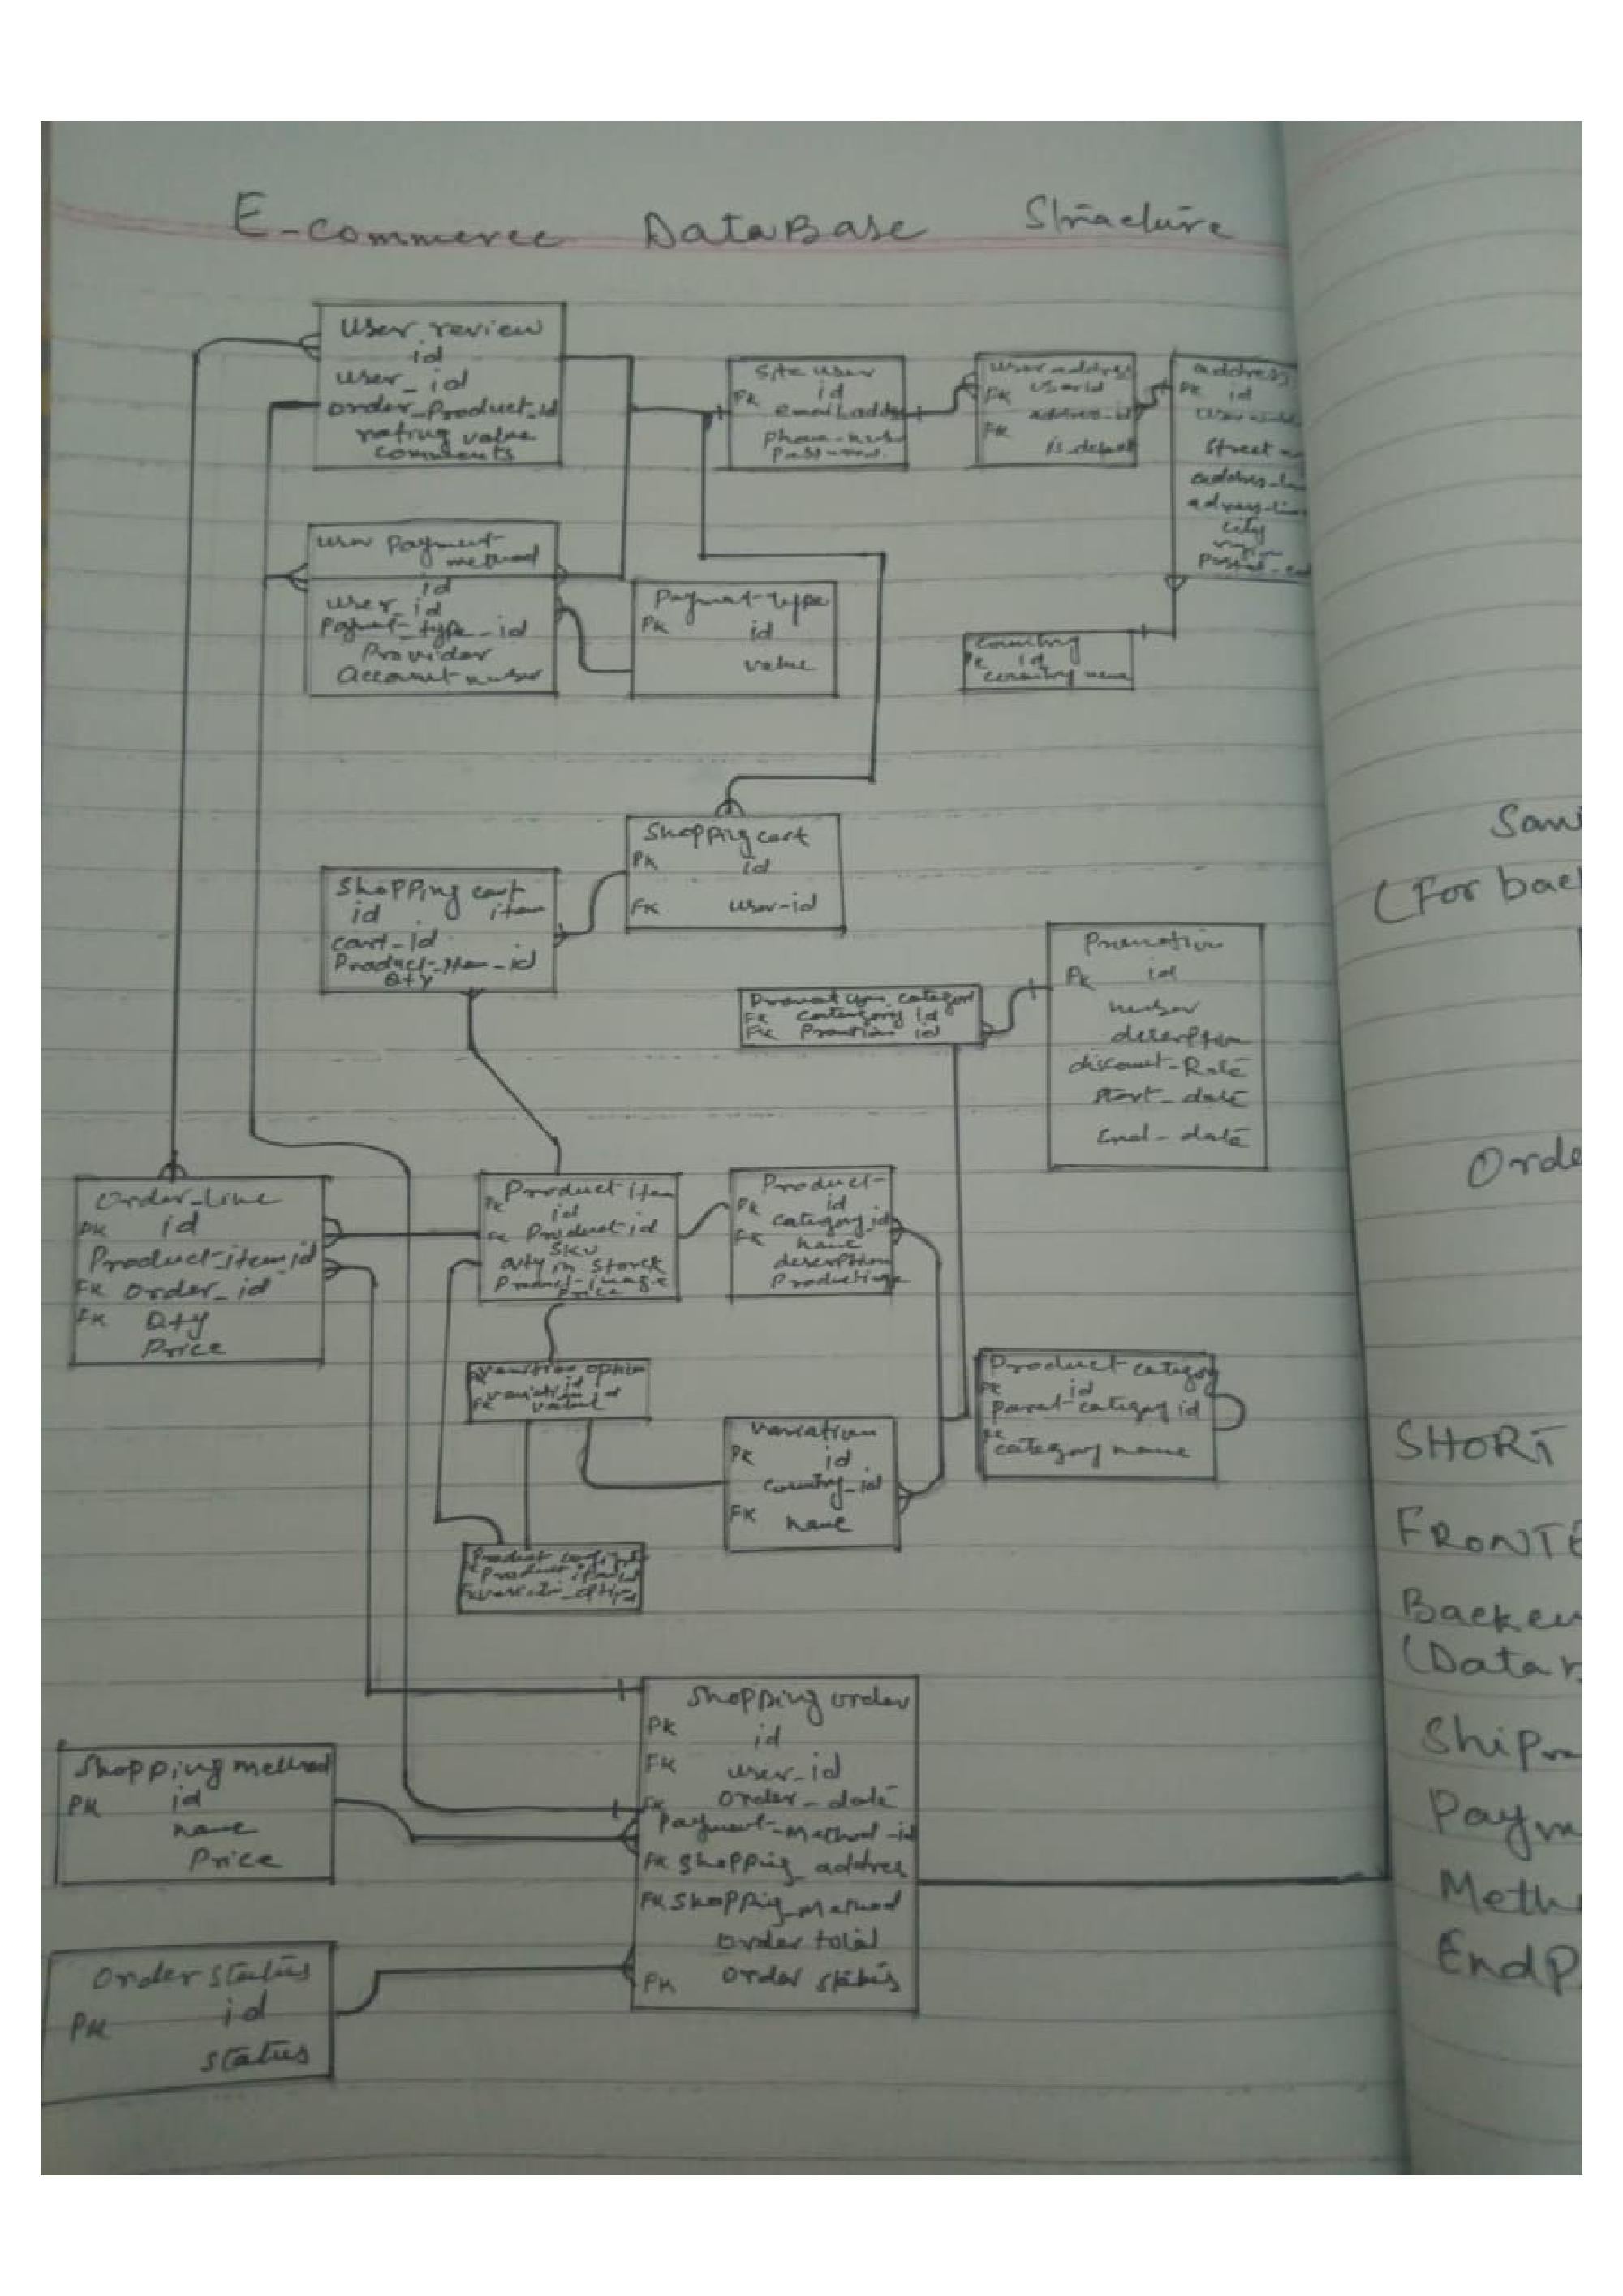 E-commerce DataBase Structure
User review
id
user_id
order_Product_id
rating value
comments
Site user
PK id
email addr
phone-num
Password
User addres
FK userid
address-id
FK
is_default
address
PK id
Street n
address-lin
address-lin
city
region
Postal-co
User Payment
method
id
user_id
Payment_type_id
Provider
Account number
Payment-type
PK
id
value
Country
PK id
Country name
Shopping cart
PK id
FK user-id
Shopping cart
id item
cart_id
Product-Item_id
Qty
Sam
(For back
Promotion
PK id
number
description
discount-Rate
start_date
End-date
category
FK category id
FK Promtion id
Orde
Order-Line
PK id
Product-item_id
FK order_id
FK Qty
Price
Product item
PK id
FK Product id
SKU
Qty in Storck
Product-image
Price
Product-
PK id
category_id
FK name
description
Product
variation option
PK id
variation id
FK value
Product category
PK id
Parent-category id
category name
variation
PK id
country_id
FK name
Product config
Product item id
FK variation_option
SHORT
FRONTE
Backen
(Data
Shipm
Paym
Meth
EndP
Shopping order
PK id
FK user_id
order_date
FK
Payment-Method-id
FK Shopping_addres
FK Shopping_Method
order total
PK order status
Shopping method
PK id
name
Price
Order status
PK id
status